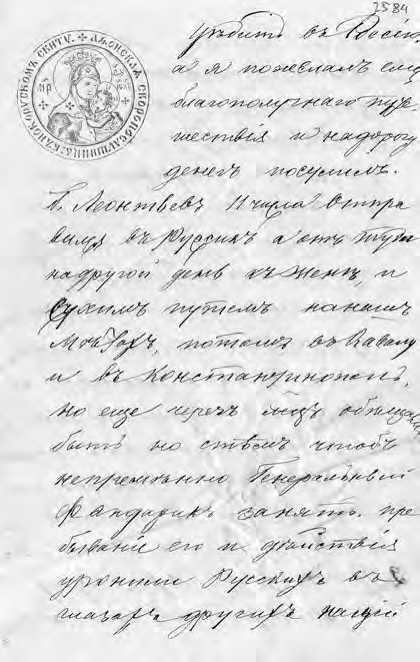 2584
АѲОНСКАЯ СКОРОПОСЛУШНИЦА
СКИТУ
уѣдитъ въ Россію
а я пожелалъ ему
благополучнаго путе
шествія и на дорогу
денегъ посулилъ.
Леонтьевъ 11 числа Отпра
вился въ Руссикъ а отъ туда
на другой день къ Женѣ, и
Сухимъ путемъ на нашихъ
потомъ въ Кавалу
и въ Константинополь,
но еще черезъ обѣщался
быть но стѣмъ чтобъ
непремѣнно Генеральный
Фандарикъ занять. пре
бываніе его и дѣйствія
уронили Русскихъ въ
глазахъ другихъ націй